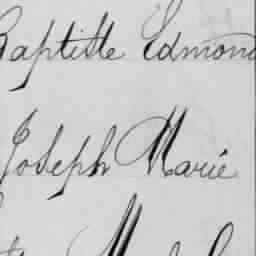 Baptiste Edmond
Joseph Marie